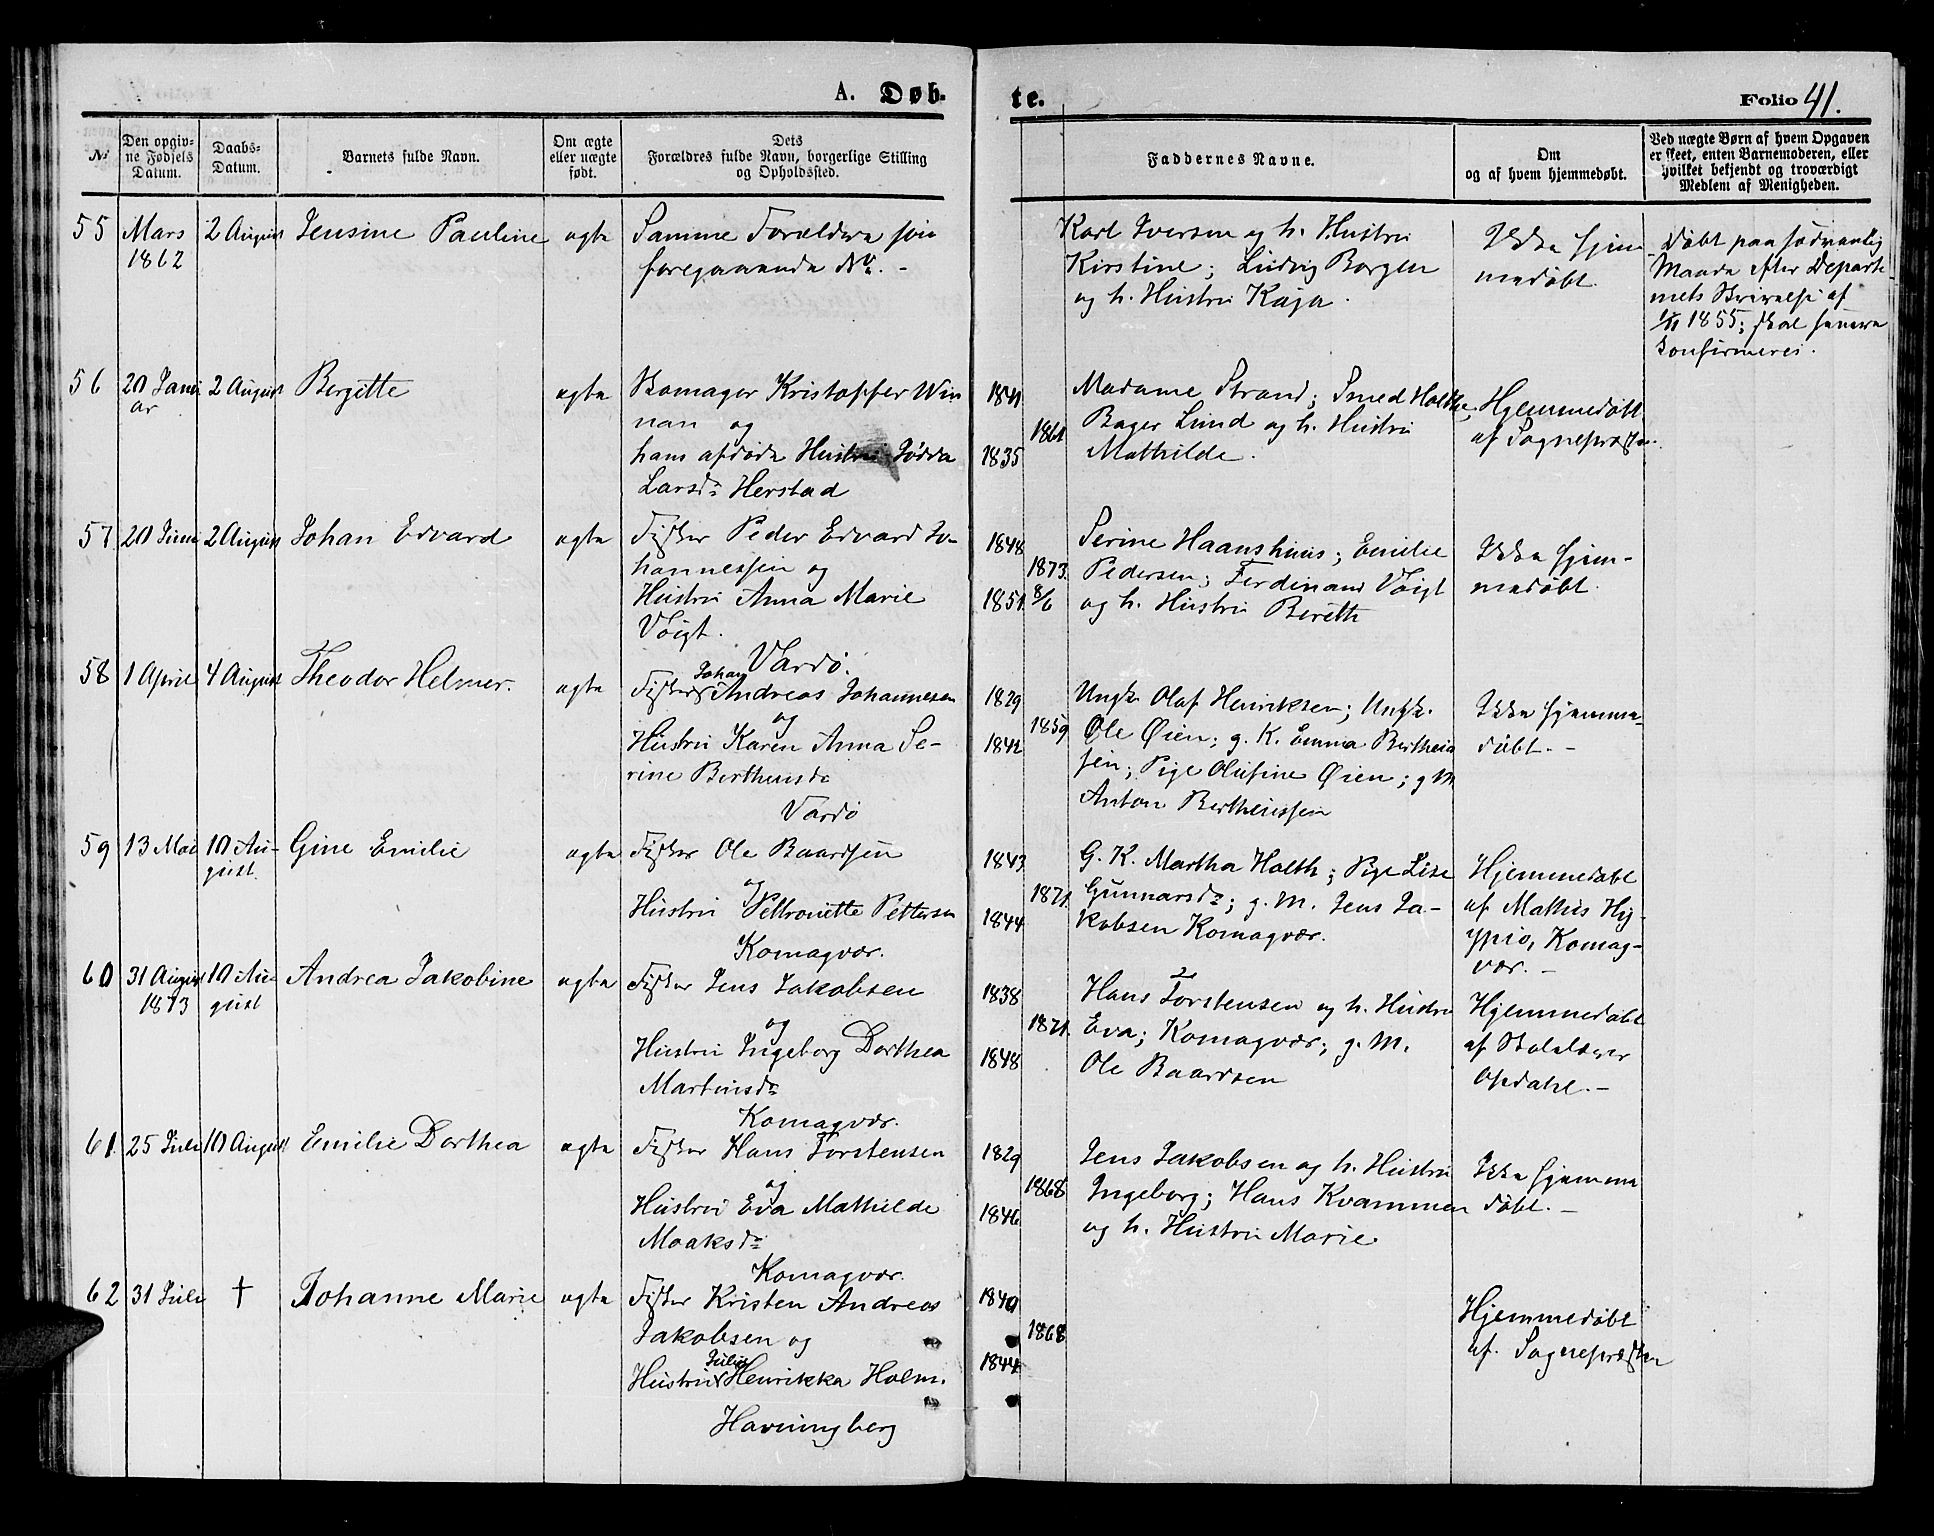 A. Døb-
te.
Folio 41.
№
Den opgiv-
ne Fødsels
Datum.
Daabs-
Datum.
Barnets fulde Navn.
Om ægte
eller uægte
født.
Dets
Forældres fulde Navn, borgerlige Stilling
og Opholdssted.
Faddernes Navne.
Om
og af hvem hjemmedøbt.
Ved uægte Børn af hvem Opgaven
er skeet, enten Barnemoderen, eller
hvilket bekjendt og troværdigt
Medlem af Menigheden.
55
Mars
1862
2 August
Jensine Pauline
ægte
Samme Forældre som
foregaaende No. -
Karl Iversen og h. Hustru
Kirstine; Ludvig Borgen
og h. Hustru Kaja.
Ikke hjem
medøbt.
Døbt paa sædvanlig
Maade efter Departe-
mets Skrivelse af
1855; skal senere
konfirmeres.
56
20 Janu
ar
2 August
Bergitte
ægte
Kristoffer Win
nan og
hans afdøde Hustru Jødda
Larsdr Herstad
1841
1835
1861
Madame Strand; Smed Holthe;
Bager Lund og h. Hustru
Mathilde.
Hjemmedøbt
af Sognepræsten.
57
20 Juni
2 August
Johan Edvard
ægte
Fisker Peder Edvard Jo-
hannessen og
Hustru Anna Marie
Voigt.
Vardø.
1848
1851
1873
8/6
Serine Haanshuus; Emilie
Pedersen; Ferdinand Voigt
og h. Hustru Bereth
Ikke hjem-
medøbt.
58
1 April
4 August
Theodor Helmer.
ægte
Johan
Fisker Andreas Johannesen
og
Hustru Karen Anna Se-
rine Berthensdr
Vardø
1829
1842
1859
Ungk. Olaf Henriksen; Ungk.
Ole Øien; g. K. Emma Bertheus
sen; Pige Olufine Øien; g M
Anton Bertheussen
Ikke hjemme-
døbt. -
59
13 Mai
10 Au-
gust.
Gine Emilie
ægte
Fisker Ole Baardsen
og
Hustru Pettronette Pettersen
Komagvær.
1843
1844
1871.
G. K. Martha Holth; Pige Lise
Gunnarsdr; g. M. Jens Ja-
kobsen Komagvær.
Hjemmedøbt
af Mathis Hy-
ypio, Komag-
vær. -
60
31 August
1873
10 Au-
gust
Andrea Jakobine
ægte
Fisker Jens Jakobsen
og
Hustru Ingeborg Dorthea
Martinsdr
Komagvær.
1838
1848
1871.
Hans Torstensen og h. Hustru
Eva; Komagvær; g. M.
Ole Baardsen
Hjemmedøbt
af Skolelærer
Opdahl. -
61.
25 Juli
10 August
Emilie Dorthea
ægte
Fisker Hans Torstensen
og
Hustru Eva Mathilde
Moaksdr
Komagvær.
1829
1846
1868
Jens Jakobsen og h. Hustru
Ingeborg; Hans Kvammen
og h. Hustru Marie.
Ikke hjemme
døbt. -
62
31 Juli
†
Johanne Marie
ægte
Fisker Kristen Andreas
Jakobsen og
Julie
Hustru Henrikka Holm.
Havningberg
1840
1844
1868
Hjemmedøbt
af. Sognepræsten